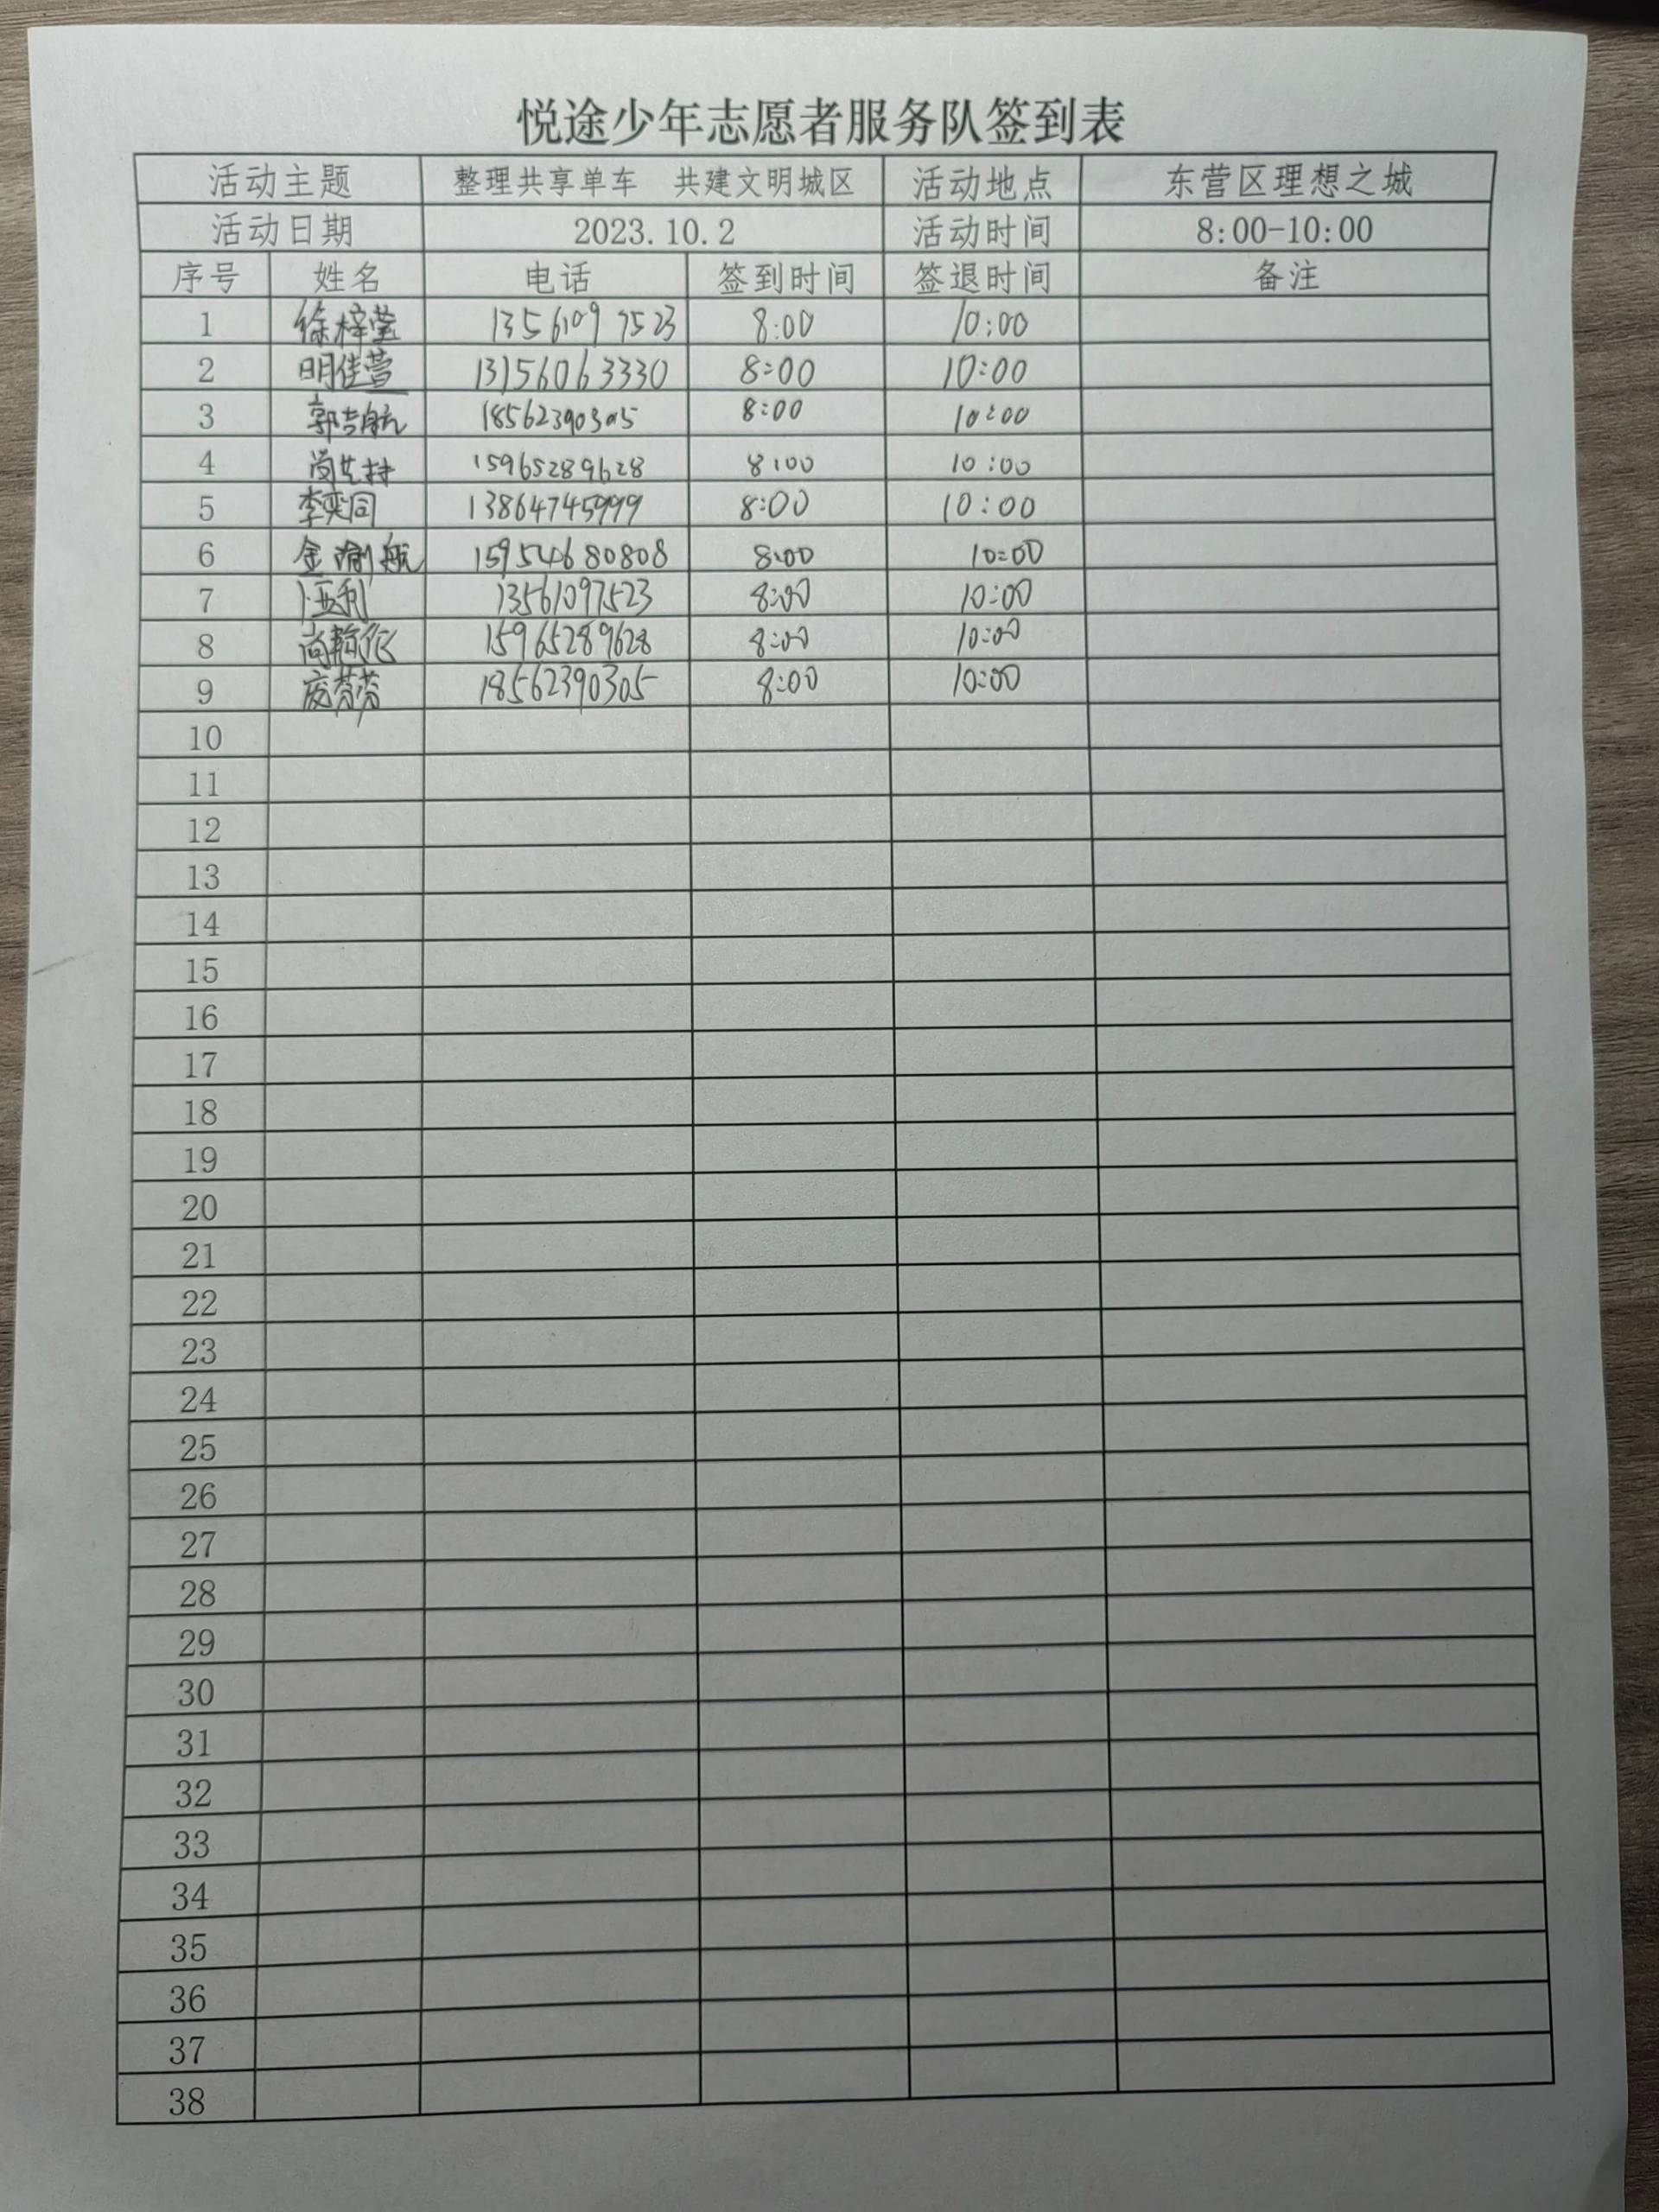 悦途少年志愿者服务队签到表
活动主题 整理共享单车 共建文明城区 活动地点 东营区理想之城
活动日期 2023.10.2 活动时间 8:00-10:00
序号 姓名 电话 签到时间 签退时间 备注
1 徐梓莹 13561097523 8:00 10:00
2 明佳萱 13156063330 8:00 10:00
3 郭吉航 18562390305 8:00 10:00
4 15965289628 8:00 10:00
5 李奕同 13864745999 8:00 10:00
6 金瑜航 15954680808 8:00 10:00
7 13561097523 8:00 10:00
8 15965289628 8:00 10:00
9 18562390305 8:00 10:00
10
11
12
13
14
15
16
17
18
19
20
21
22
23
24
25
26
27
28
29
30
31
32
33
34
35
36
37
38